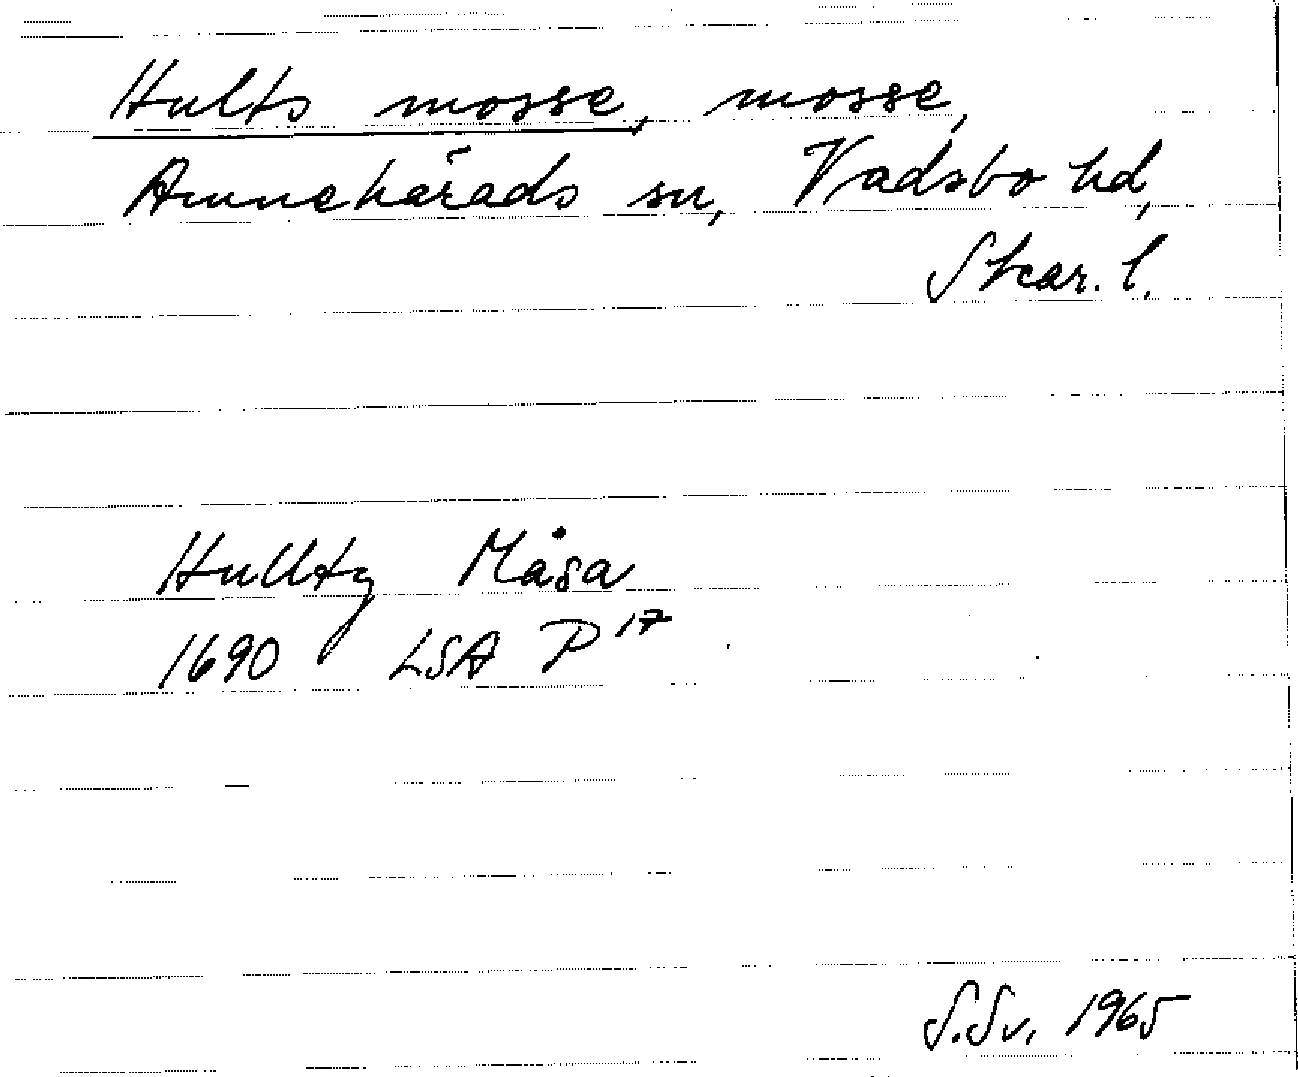 Hults mosse, mosse,
Amnehärads sn, Vadsbo hd,
Skar. l.
Hultz Måsa
1690 LSA P 17
S.Sv. 1965